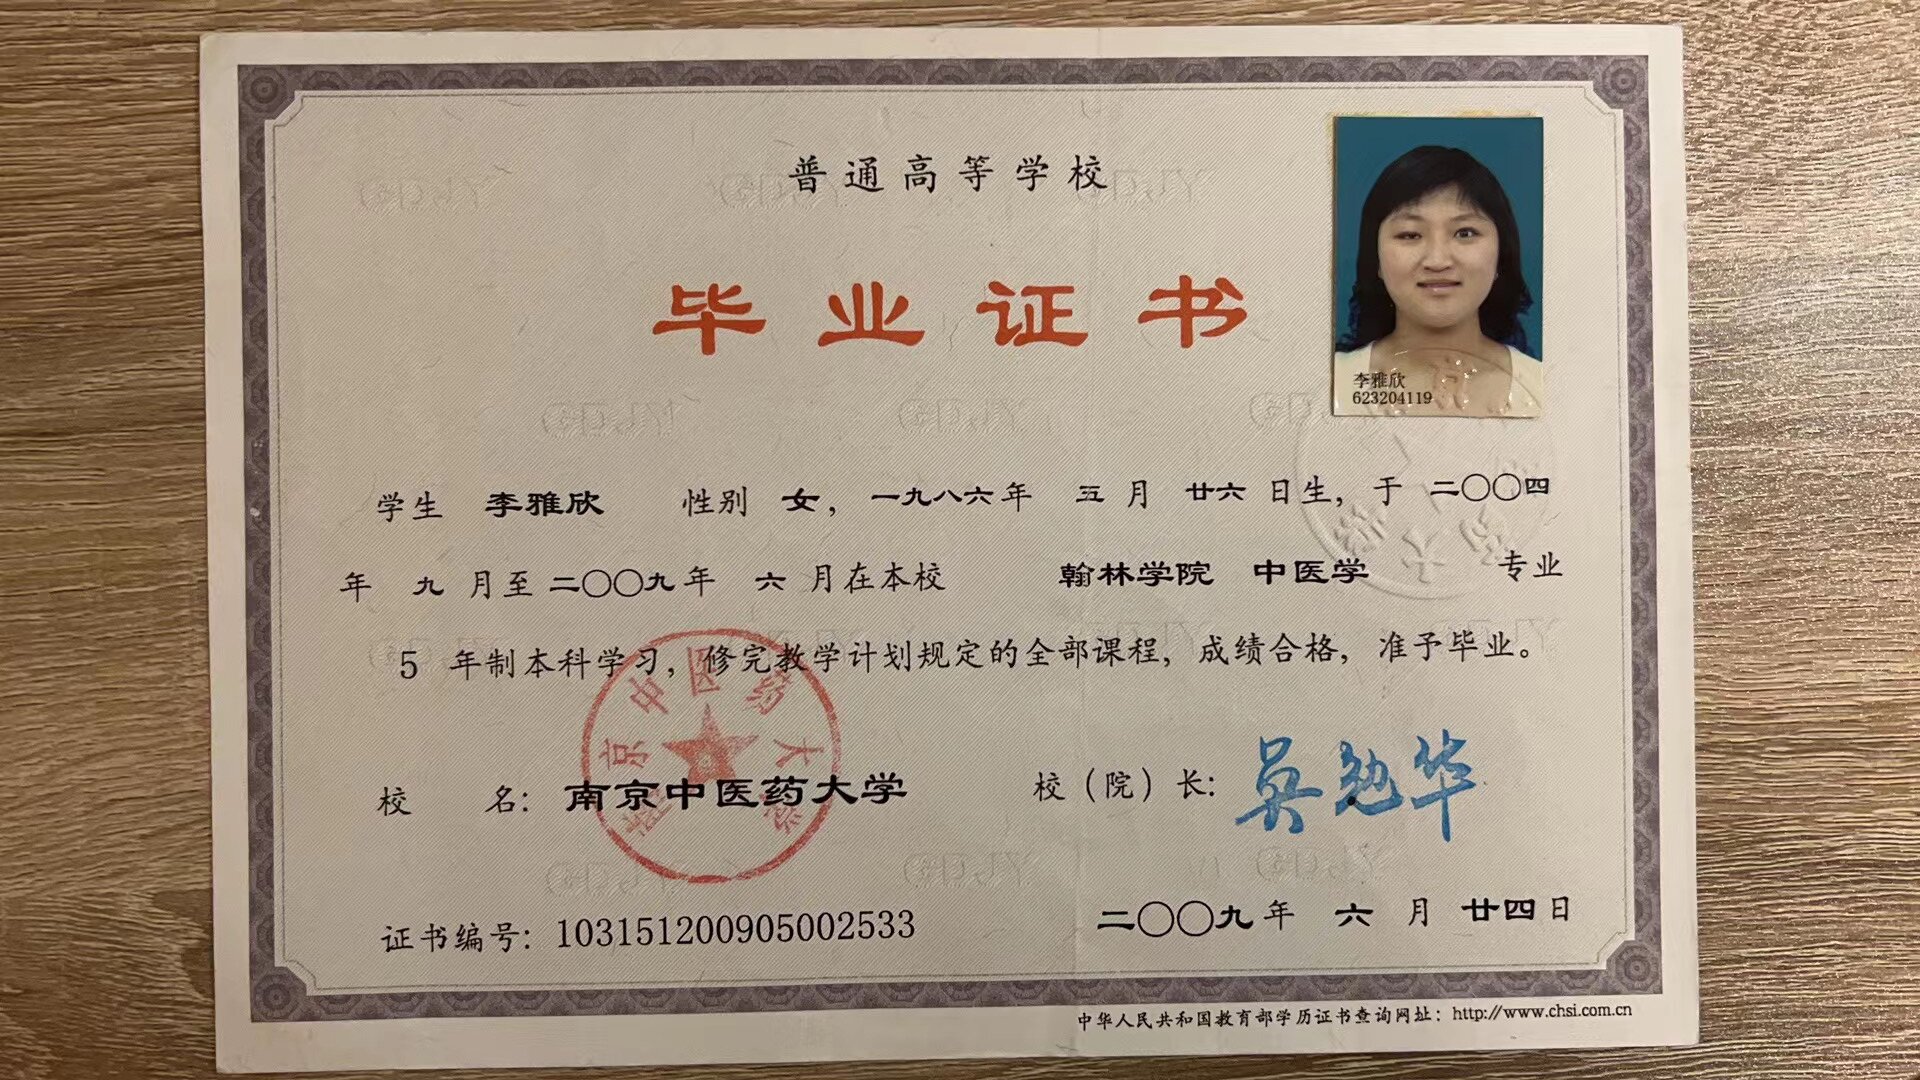 普通高等学校
毕业证书
李雅欣
623204119
学生 李雅欣 性别 女，一九八六年 五 月 廿六 日生，于 二〇〇四
年 九 月至二〇〇九年 六 月在本校 翰林学院 中医学 专业
5 年制本科学习，修完教学计划规定的全部课程，成绩合格，准予毕业。
南京中医药大学
校 名：南京中医药大学 校（院）长：吴勉华
证书编号：103151200905002533 二〇〇九年 六 月 廿四日
中华人民共和国教育部学历证书查询网址：http://www.chsi.com.cn